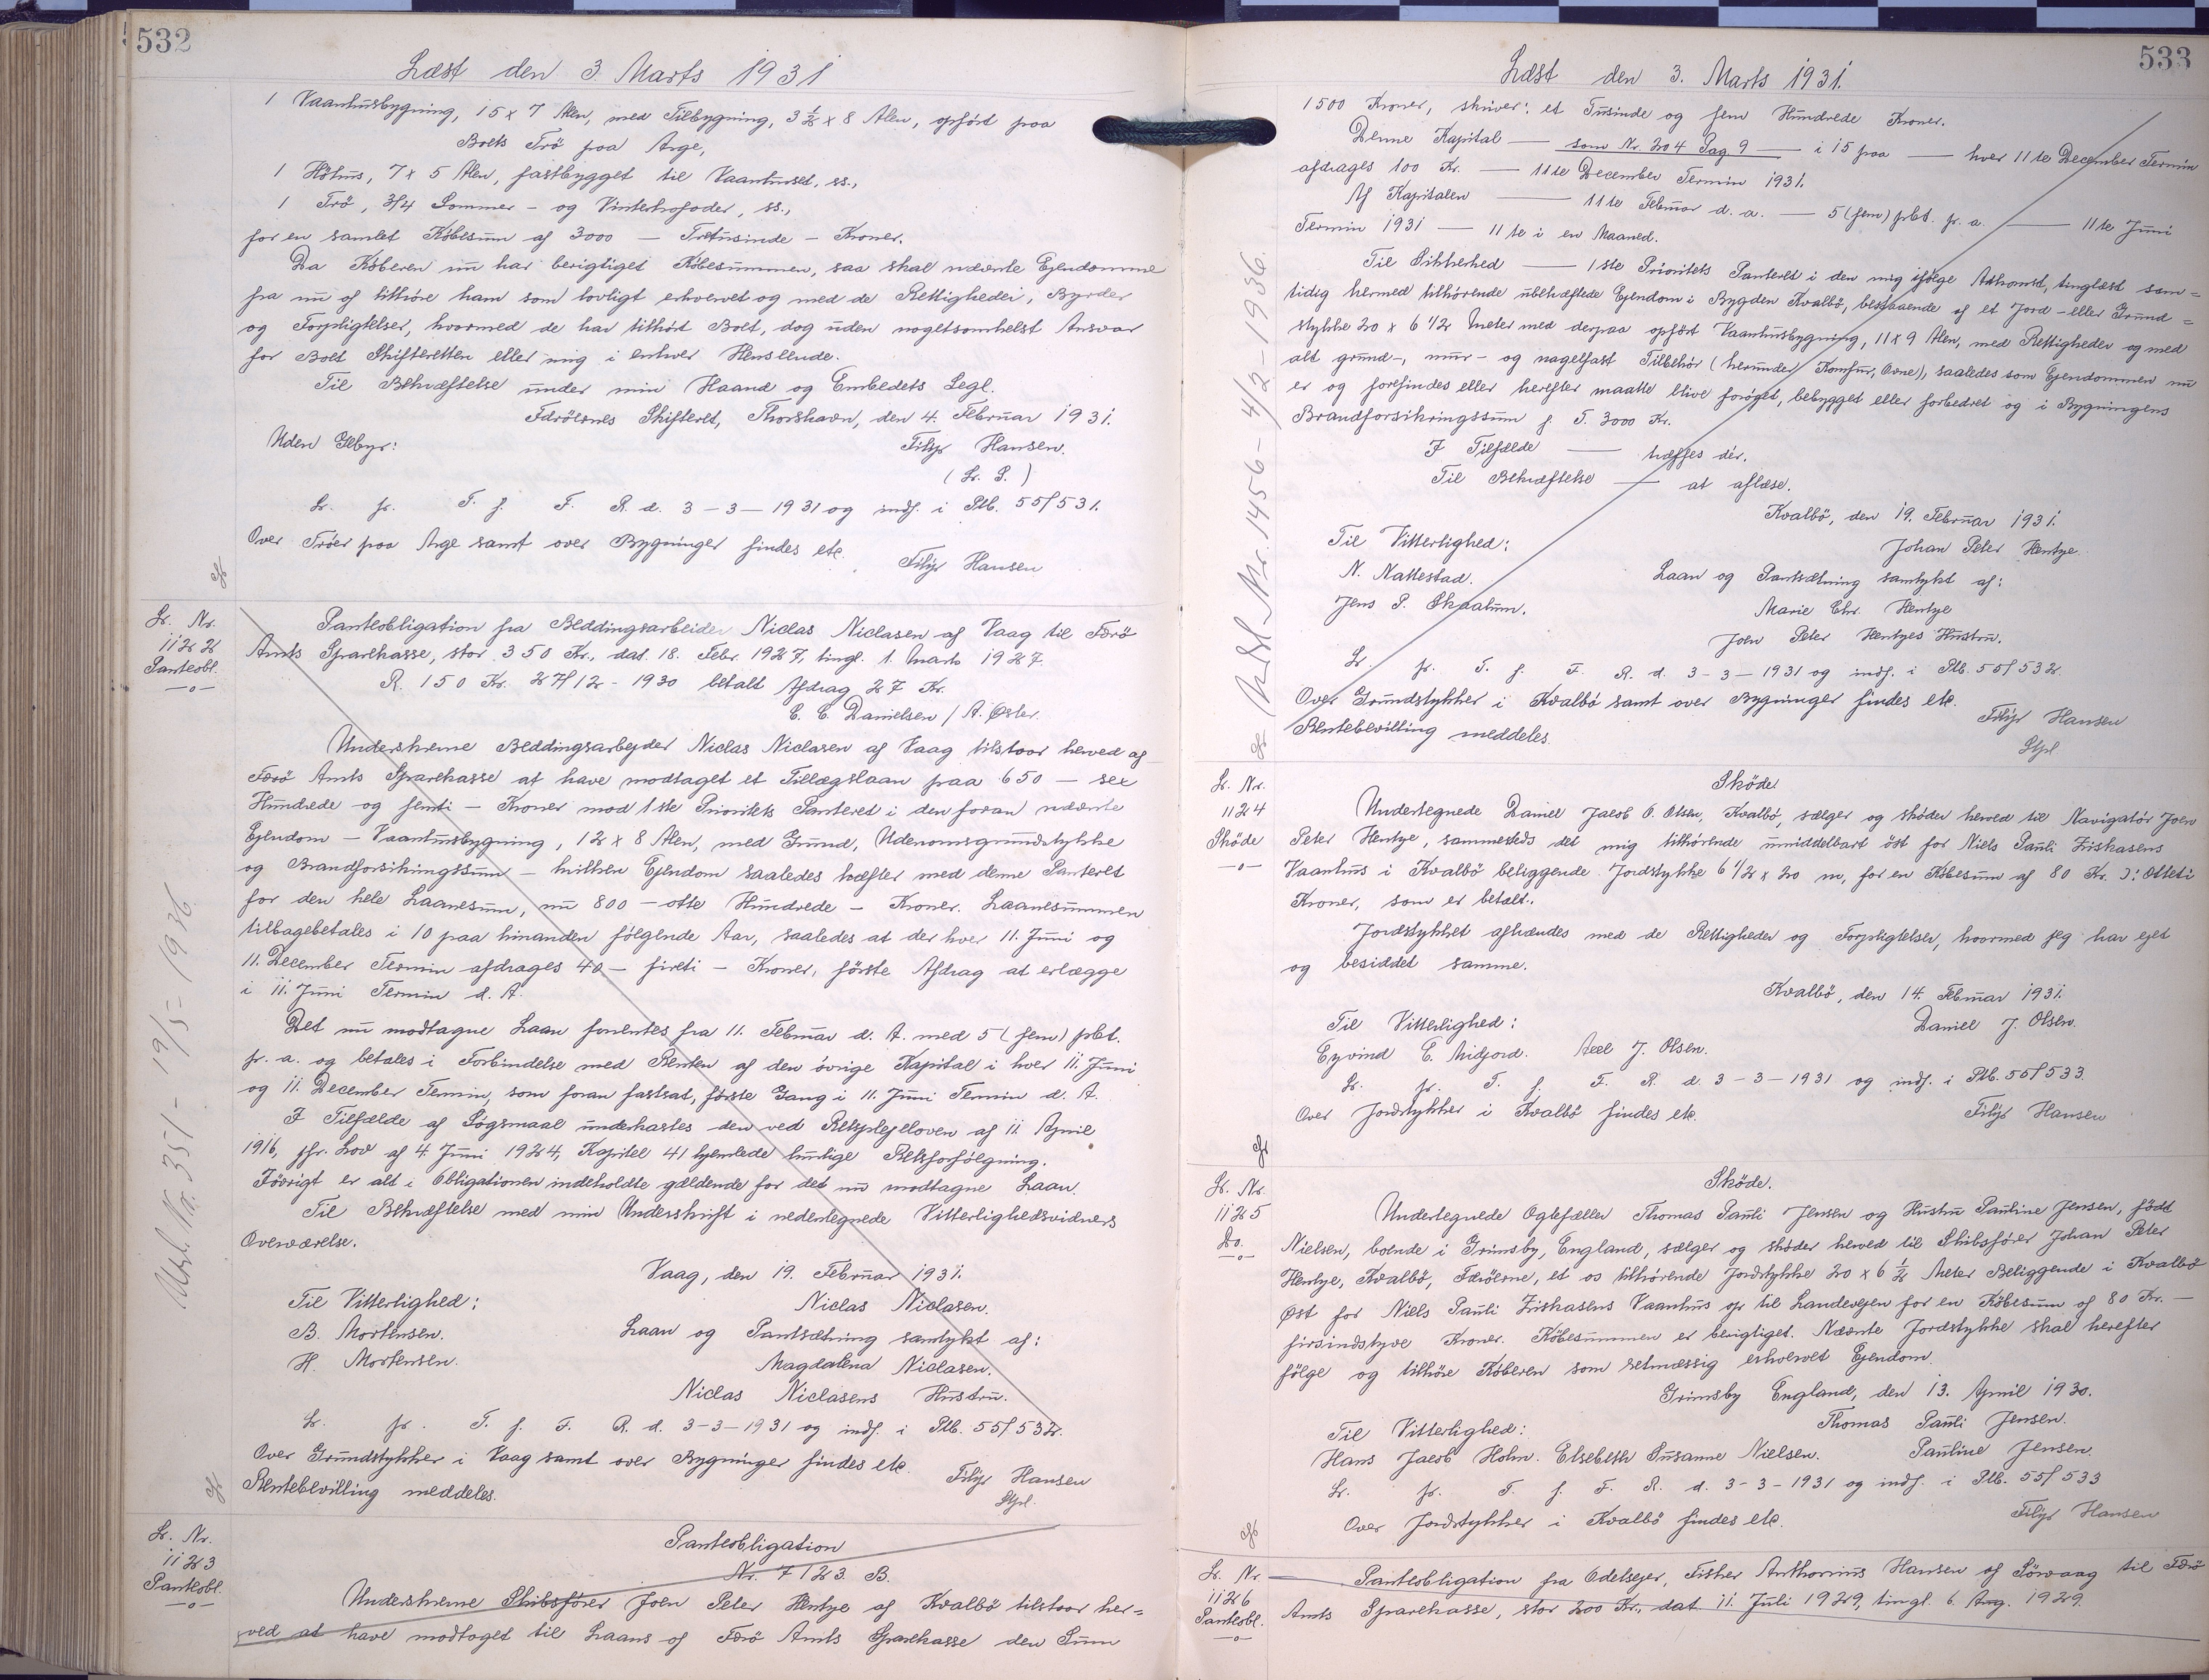 532
Læst den 3. Marts 1931
1 Vaanhusbygning, 15 x 7 Alen, med Tilbygning, 3 1/2 x 8 Alen, opført paa
Boets Trö paa Arge,
1 Höhus, 7 x 5 Alen, fastbygget til Vaanhuset, ss.,
1 Trö, 3/4 Sommer- og Vinterkofoder, ss.,
for en samlet Købesum af 3000 — Tretusinde — Kroner.
Da Køberen nu har berigtiget Købesummen, saa skal nævnte Ejendomme
fra nu af tilhöre ham som lovligt erhvervet og med de Rettigheder, Byrder
og Forpligtelser, hvormed de har tilhört Boet, dog uden nogetsomhelst Ansvar
for Boet Skifteretten eller mig i enhver Henseende.
Til Bekræftelse under min Haand og Embedets Segl.
Færöernes Skifteret, Thorshavn, den 4. Februar 1931.
Uden Gebyr: Filip Hansen.
(L. S.)
L. fr. T. f. F. R. d. 3-3-1931 og indf. i Ptb. 55f 531.
Over Tröer paa Arge samt over Bygninger findes etc.
Filip Hansen
L. Nr.
1122
Panteobl.
—o—
Panteobligation fra Beddingsarbeider Niclas Niclasen af Vaag til Færö
Amts Sparekasse, stor 350 Kr., dat. 18. Febr. 1927, tingl. 1. Marts 1927.
R. 150 Kr. 27/12-1930 betalt Afdrag 27 Kr.
C. C. Danielsen / A. Øster.
Underskrevne Beddingsarbejder Niclas Niclasen af Vaag tilstaar herved af
Færö Amts Sparekasse at have modtaget et Tillægslaan paa 650 — sex
Hundrede og femti — Kroner mod 1ste Prioritets Panteret i den foran nævnte
Ejendom — Vaanhusbygning, 12 x 8 Alen, med Grund, Udenomsgrundstykke
og Brandforsikringssum — hvilken Ejendom saaledes hæfter med denne Panteret
for den hele Laanesum, nu 800 — otte Hundrede — Kroner. Laanesummen
tilbagebetales i 10 paa hinanden følgende Aar, saaledes at der hver 11. Juni og
11. December Termin afdrages 40 — firti — Kroner, første Afdrag at erlægge
i 11. Juni Termin d. A.
Det nu modtagne Laan forrentes fra 11. Februar d. A. med 5 (fem) pCt.
pr. a. og betales i Forbindelse med Renten af den övrige Kapital i hver 11. Juni
og 11. December Termin, som foran fastsat, første Gang i 11. Juni Termin d. A.
I Tilfælde af Søgsmaal underkastes den ved Retsplejeloven af 11. April
1916, jfr. Lov af 4. Juni 1924, Kapitel 41 hjemlede hurtige Retsforfølgning.
Iövrigt er alt i Obligationen indeholdte gældende for det nu modtagne Laan.
Til Bekræftelse med min Underskrift i nedentegnede Vitterlighedsvidners
Overværelse.
Vaag, den 19. Februar 1931.
Til Vitterlighed: Niclas Niclasen.
B. Mortensen. Laan og Pantsætning samtykt af:
H. Mortensen. Magdalena Niclasen.
Niclas Niclasens Hustru.
L. fr. T. f. F. R. d. 3-3-1931 og indf. i Ptb. 55f 532.
Over Grundstykker i Vaag samt over Bygninger findes etc.
Rentebevilling meddeles. Filip Hansen
Stpl.
Udsl. Nr. 351 - 19/5 - 1936
L. Nr.
1123
Panteobl.
—o—
Panteobligation
Nr. 7123 B.
Underskrevne Skibsfører Joen Peter Hentze af Kvalbö tilstaar her=
ved at have modtaget til Laans af Færö Amts Sparekasse den Sum
533
Læst den 3. Marts 1931.
1500 Kroner, skriver: et Tusinde og fem Hundrede Kroner.
Denne Kapital — som Nr. 204 Pag 9 — i 15 paa — hver 11te December Termin
afdrages 100 Kr. — 11te December Termin 1931.
Af Kapitalen — 11te Februar d. a. — 5 (fem) pCt. pr. a. — 11te Juni
Termin 1931 — 11te i en Maaned.
Til Sikkerhed — 1ste Prioritets Panteret i den mig ifølge Adkomst, tinglæst sam=
tidig hermed tilhørende ubehæftede Ejendom i Bygden Kvalbö, bestaaende af et Jord- eller Grund=
stykke 20 x 6 1/2 Meter med derpaa opført Vaanhusbygning, 11 x 9 Alen, med Rettigheder og med
alt grund-, mur- og nagelfast Tilbehör (herunder Komfur, Ovne), saaledes som Ejendommen nu
er og forefindes eller herefter maatte blive forøget, bebygget eller forbedret og i Bygningens
Brandforsikringssum p. T. 3000 Kr.
I Tilfælde — træffes dér.
Til Bekræftelse — at aflæse.
Kvalbö, den 19. Februar 1931.
Til Vitterlighed: Johan Peter Hentze.
N. Nattestad. Laan og Pantsætning samtykt af:
Jens P. Skaalum. Marie Chr. Hentze
Joen Peter Hentzes Hustru.
L. fr. T. f. F. R. d. 3-3-1931 og indf. i Ptb. 55f 532.
Over Grundstykker i Kvalbö samt over Bygninger findes etc.
Rentebevilling meddeles. Filip Hansen
Stpl.
Udsl. Nr. 1456 - 4/2 - 1936.
L. Nr.
1124
Sköde
—o—
Sköde
Undertegnede Daniel Jacob O. Olsen, Kvalbö, sælger og skøder herved til Navigatør Joen
Peter Hentze, sammesteds det mig tilhörende umiddelbart öst for Niels Pauli Ziskasens
Vaanhus i Kvalbö beliggende Jordstykke 6 1/2 x 20 m, for en Købesum af 80 Kr. ɔ: Otteti
Kroner, som er betalt.
Jordstykket afhændes med de Rettigheder og Forpligtelser, hvormed jeg har ejet
og besiddet samme.
Kvalbö, den 14. Februar 1931.
Til Vitterlighed: Daniel J. Olsen.
Eyvind E. Midjord. Axel J. Olsen.
L. fr. T. f. F. R. d. 3-3-1931 og indf. i Ptb. 55f 533.
Over Jordstykker i Kvalbö findes etc. Filip Hansen
L. Nr.
1125
Do.
—o—
Sköde.
Undertegnede Thomas Pauli Jensen og Hustru Pauline Jensen, født
Nielsen, boende i Grimsby, England, sælger og skøder herved til Skibsfører Johan Peter
Hentze, Kvalbö, Færöerne, et os tilhørende Jordstykke 20 x 6 1/2 Meter Beliggende i Kvalbö
Øst for Niels Pauli Ziskasens Vaanhus op til Landevejen for en Købesum af 80 Kr. —
firsindstyve Kroner. Købesummen er berigtiget. Nævnte Jordstykke skal herefter
følge og tilhöre Køberen som retmæssig erhvervet Ejendom.
Grimsby England, den 13. April 1930.
Til Vitterlighed: Thomas Pauli Jensen.
Hans Jacob Holm. Elsebeth Susanne Nielsen. Pauline Jensen.
L. fr. T. f. F. R. d. 3-3-1931 og indf. i Ptb. 55f 533
Over Jordstykker i Kvalbö findes etc. Filip Hansen
L. Nr
1126
Panteobl.
—o—
Panteobligation fra Odelsejer, Fisker Anthonius Hansen af Sörvaag til Færö
Amts Sparekasse, stor 200 Kr., dat. 11. Juli 1929, tingl. 6. Aug. 1929.